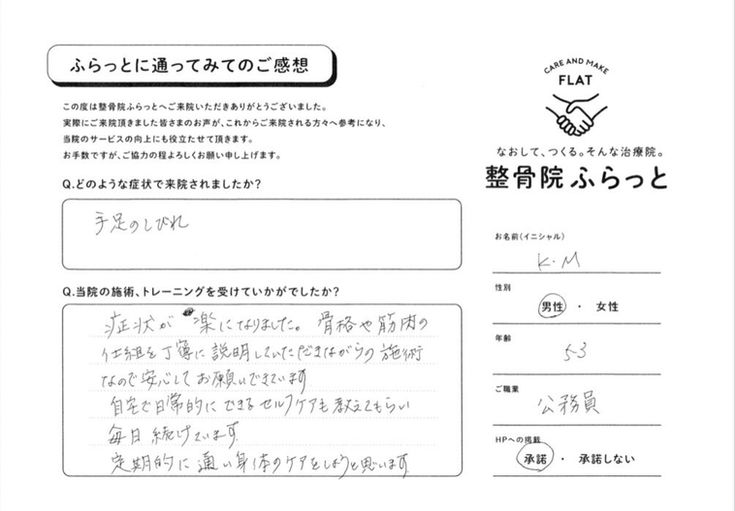 ふらっとに通ってみてのご感想
この度は整骨院ふらっとへご来院いただきありがとうございました。
実際にご来院頂きました皆さまのお声が、これからご来院される方々へ参考になり、
当院のサービスの向上にも役立たせて頂きます。
お手数ですが、ご協力の程よろしくお願い申し上げます。
Q.どのような症状で来院されましたか?
手足のしびれ
Q.当院の施術、トレーニングを受けていかがでしたか?
症状が 楽になりました。骨格や筋肉の
仕組を丁寧に説明していただきながらの施術
なので安心してお願いできています
自宅で日常的にできるセルフケアも教えてもらい
毎日続けています
定期的に通い身体のケアをしようと思います
CARE AND MAKE
FLAT
なおして、つくる。そんな治療院。
整骨院 ふらっと
お名前(イニシャル)
K.M
性別
男性 ・ 女性
年齢
53
ご職業
公務員
HPへの掲載
承諾 ・ 承諾しない